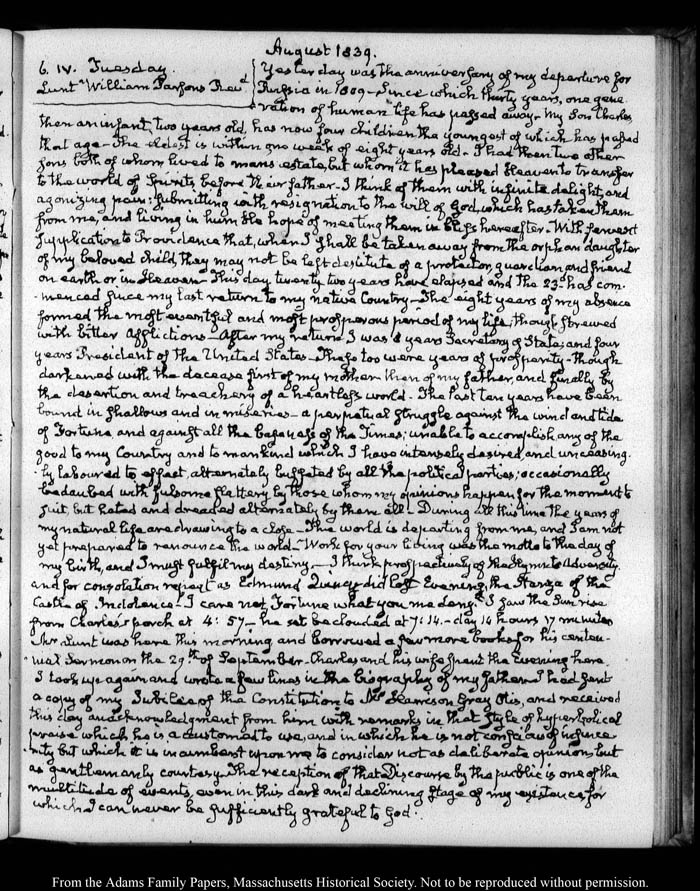 August 1839.
6. IV. Tuesday.
Lunt William Parsons Revd
Yesterday was the anniversary of my departure for
Russia in 1809 - Since which thirty years, one gene
ration of human life has passed away - My Son Charles
then an infant, two years old, has now four children the youngest of which has passed
that age - The eldest is within one week of eight years old - I had then two other
Sons both of whom lived to mans estate, but whom it has pleased Heaven to transfer
to the world of Spirits before their father - I think of them with infinite delight, and
agonizing pain: submitting with resignation to the will of God, which has taken them
from me, and living in humble hope of meeting them in bliss hereafter - With fervent
Supplication to Providence that, when I shall be taken away from the orphan daughter
of my beloved Child, they may not be left destitute of a protector, guardian and friend
on earth or in Heaven - This day twenty two years have elapsed and the 23d has com-
-menced since my last return to my native Country - The eight years of my absence
formed the most eventful and most prosperous period of my life, though strewed
with bitter Afflictions - After my return I was 8 years Secretary of State; and four
years President of the United States - These too were years of prosperity - though
darkened with the decease first of my mother then of my father, and finally by
the desertion and treachery of a heartless world - The last ten years have been
bound in shallows and in miseries - a perpetual struggle against the wind and tide
of Fortune and against all the baseness of the Times; unable to accomplish any of the
good to my Country and to mankind which I have intensely desired and unceasing-
-ly laboured to effect, alternately buffeted by all the political parties; occasionally
bedaubed with fulsome flattery by those whom my opinions happen for the moment to
suit, but hated and dreaded alternately by them all - During all this time the years of
my natural life are drawing to a close - The world is departing from me, and I am not
yet prepared to renounce the world - Work for your living was the motto to the day of
my birth, and I must fulfil my destiny - I think prospectively of the Hymn to Adversity
and for consolation repeat as Edmund Quincy did last Evening, the Stanza of the
Castle of Indolence - I care not, Fortune what you me deny - I saw the Sun rise
from Charles's porch at 4: 57 - he set beclouded at 7: 14. - day 14 hours 17 minutes
Mr Lunt was here this morning and borrowed a few more books for his centen-
-nial Sermon on the 29th of September - Charles and his wife spent the Evening here.
I took up again and wrote a few lines in the biography of my father - I had sent
a copy of my Jubilee of the Constitution to Mr Harrison Gray Otis, and received
this day an acknowledgment from him with remarks in that style of hyperbolical
praise which he is accustomed to use, and in which he is not conscious of insince-
-rity but which it is incumbent upon me to consider not as deliberate opinions but
as gentlemanly courtesy. The reception of that Discourse by the public is one of the
multitude of events, even in this dark and declining stage of my existence, for
which I can never be sufficiently grateful to God.
From the Adams Family Papers, Massachusetts Historical Society. Not to be reproduced without permission.